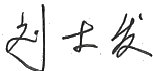 刘士发